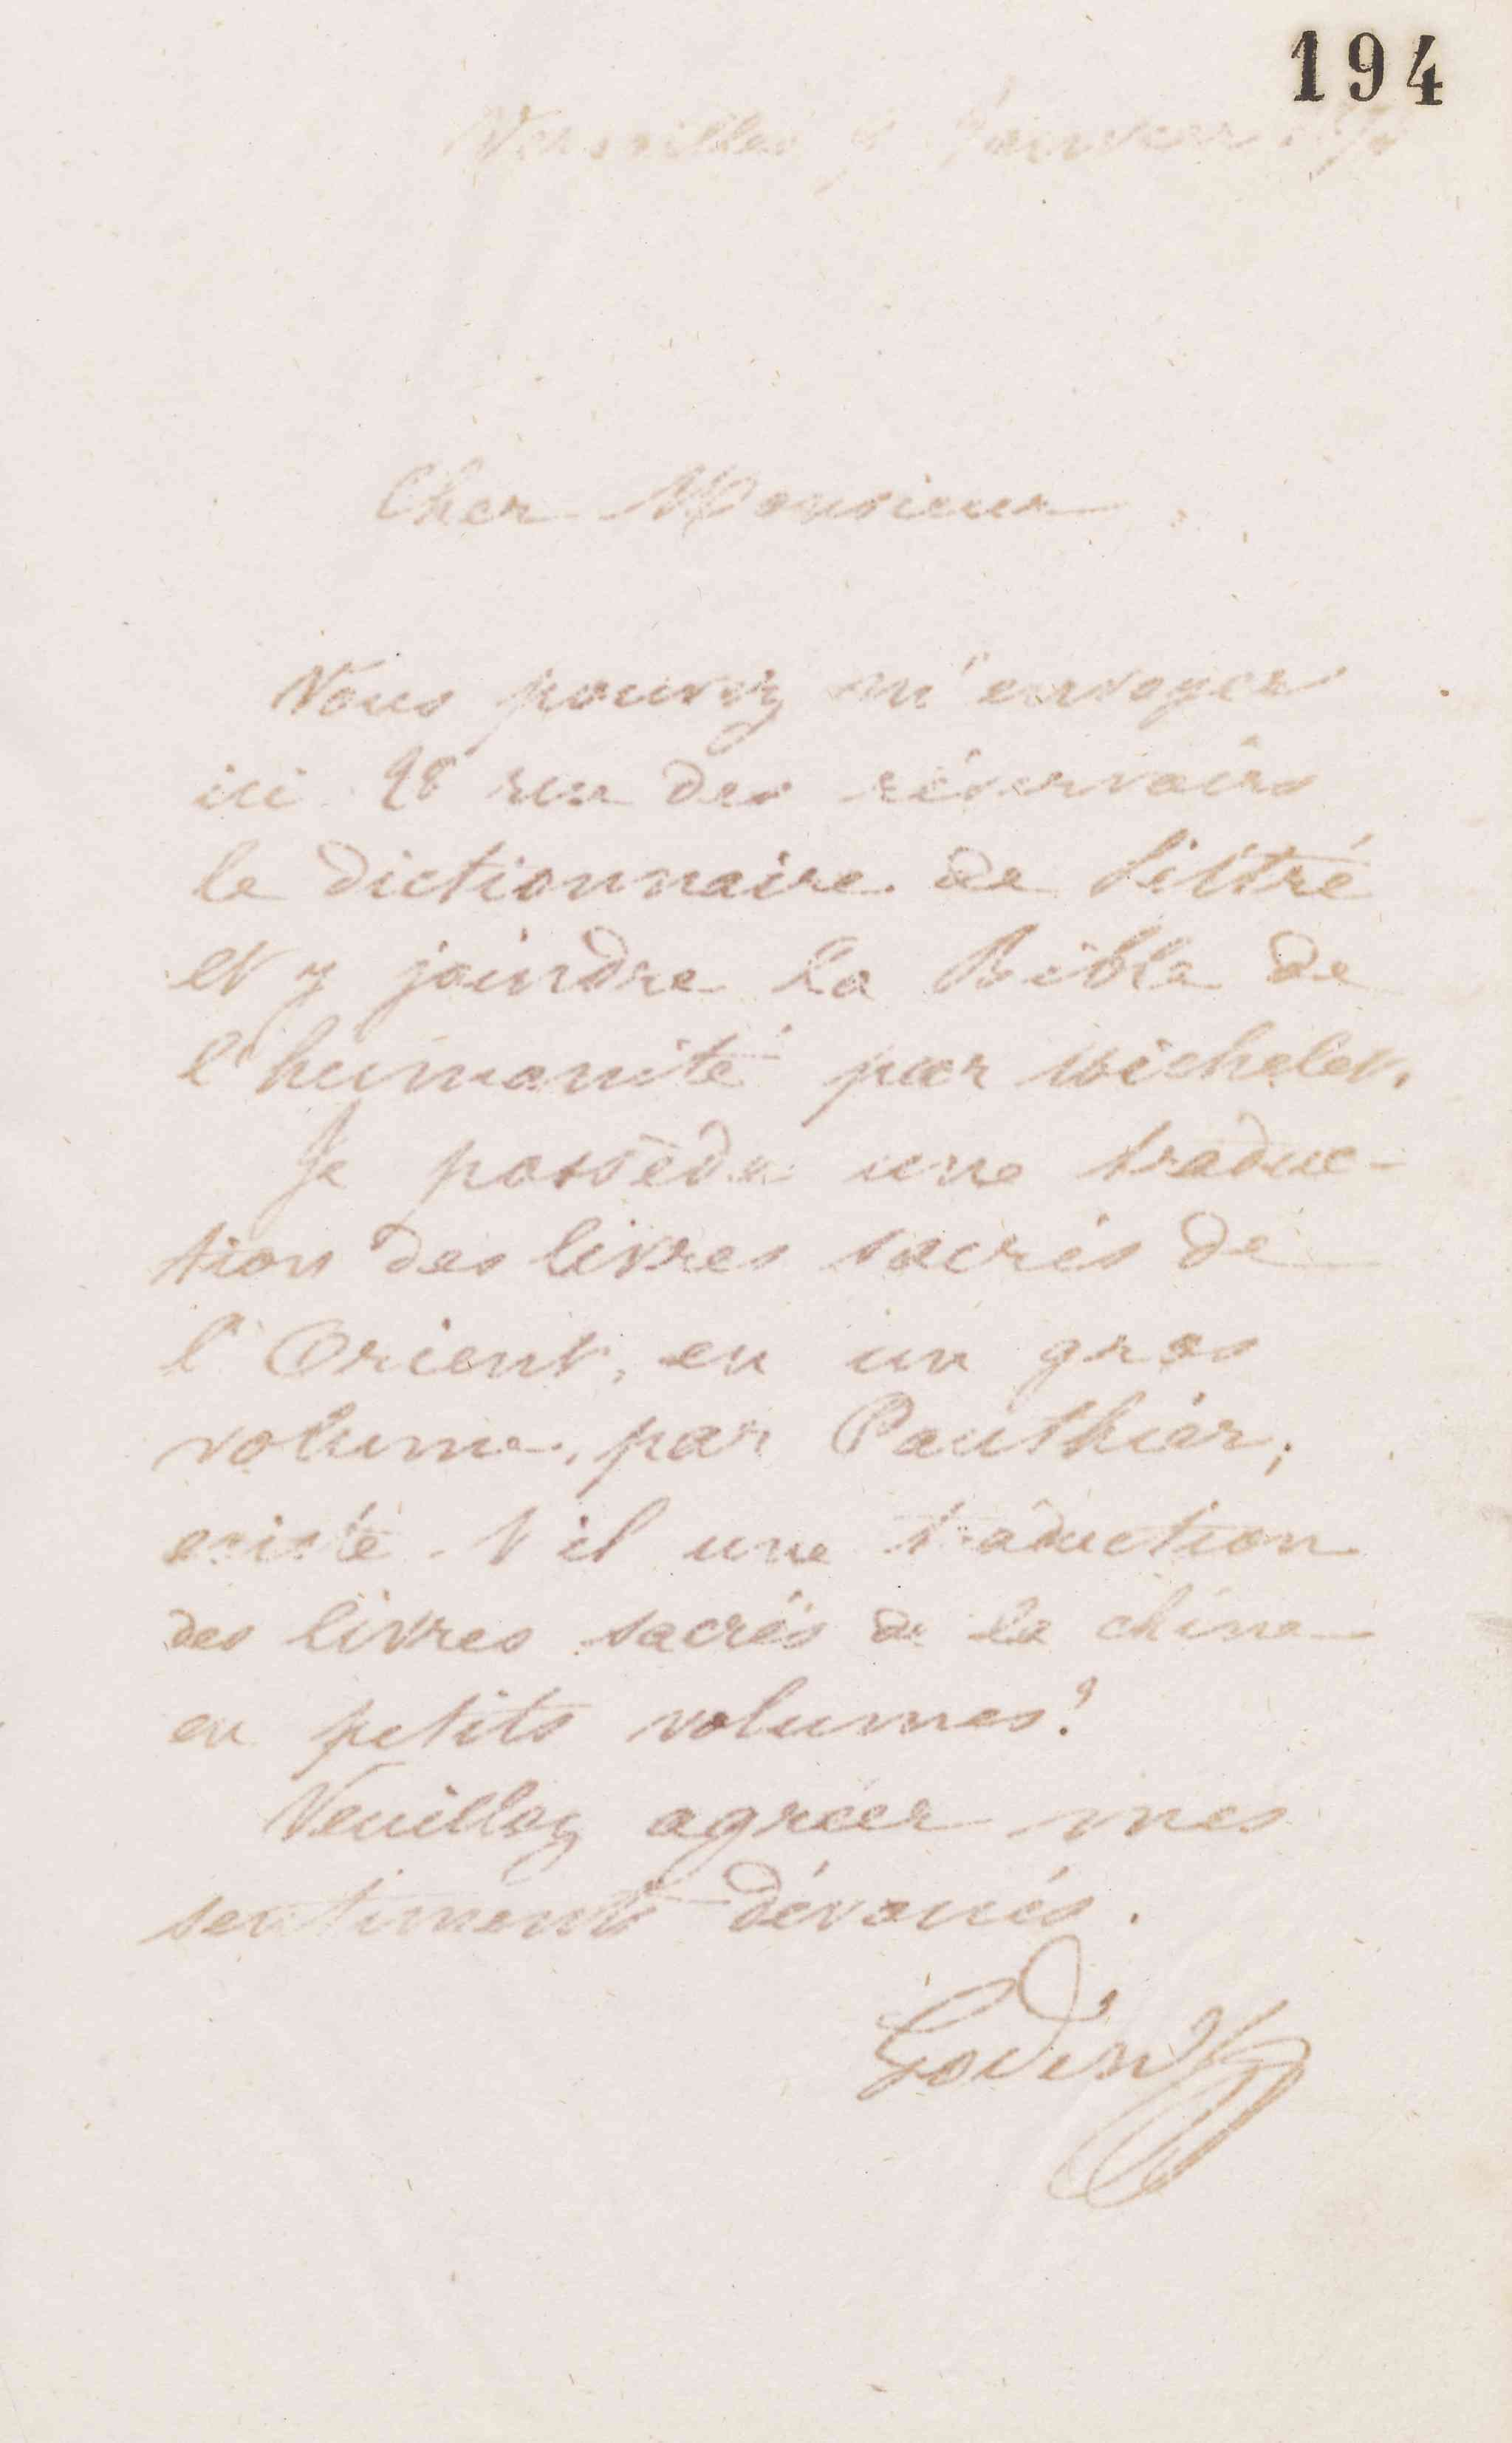 194
Versailles Janvier
Cher Monsieur
Vous pouvez m'envoyer
ici 28 rue des réservoirs
le dictionnaire de Littré
et y joindre La Bible de
l'humanité par Michelet.
Je possède une traduc-
tion des livres sacrés de
l'Orient, en un gros
volume, par Pauthier,
existe-t-il une traduction
des livres sacrés de la chine
en petits volumes?
Veuillez agréer mes
sentiments dévoués.
Godin